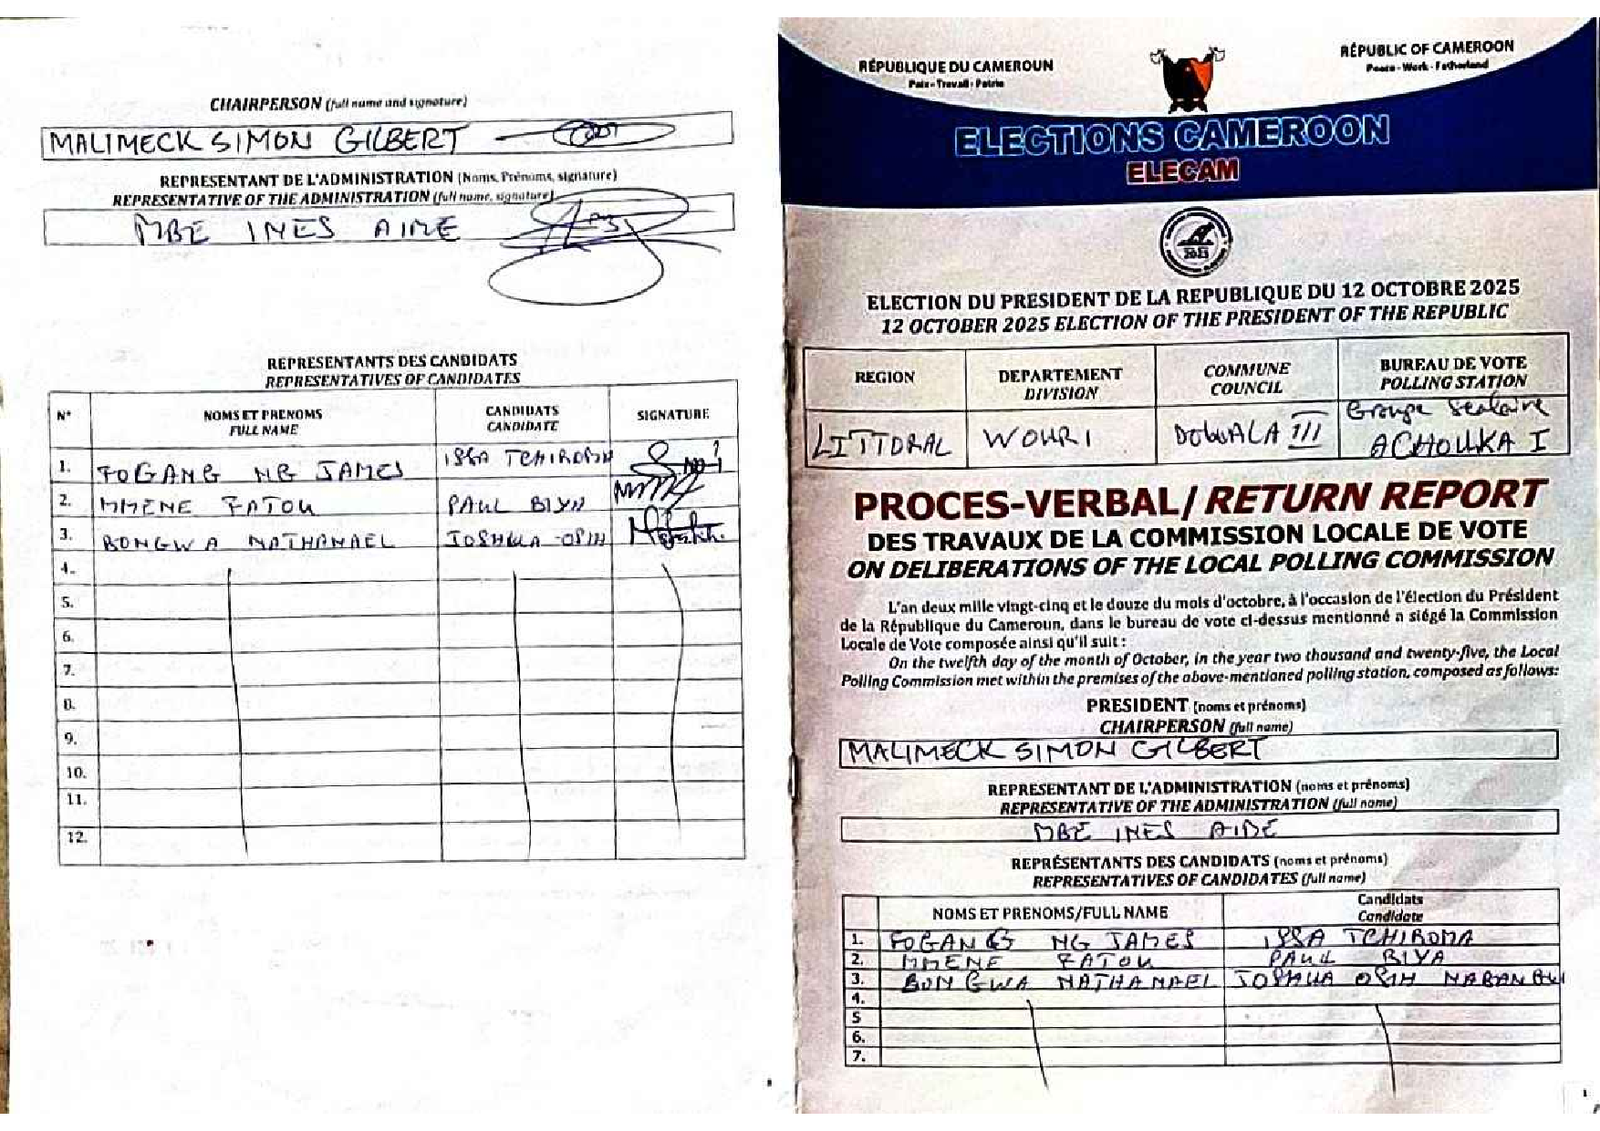 CHAIRPERSON (full name and signature)
MALIMECK SIMON GILBERT
REPRESENTANT DE L'ADMINISTRATION (Noms, Prénoms, signature)
REPRESENTATIVE OF THE ADMINISTRATION (full name, signature)
MBE INES AIME
REPRESENTANTS DES CANDIDATS
REPRESENTATIVES OF CANDIDATES
N° NOMS ET PRENOMS FULL NAME CANDIDATS CANDIDATE SIGNATURE
1. FOGANG NG JAMES ISSA TCHIROMA
2. MMENE FATOU PAUL BIYA
3. BONGWA NATHANAEL JOSHUA OSIH
4.
5.
6.
7.
8.
9.
10.
11.
12.
RÉPUBLIQUE DU CAMEROUN
Paix - Travail - Patrie
RÉPUBLIC OF CAMEROON
Peace - Work - Fatherland
ELECTIONS CAMEROON
ELECAM
2025
ELECTION DU PRESIDENT DE LA REPUBLIQUE DU 12 OCTOBRE 2025
12 OCTOBER 2025 ELECTION OF THE PRESIDENT OF THE REPUBLIC
REGION DEPARTEMENT DIVISION COMMUNE COUNCIL BUREAU DE VOTE POLLING STATION
LITTORAL WOURI DOUALA III Groupe Scolaire ACHOUKA I
PROCES-VERBAL / RETURN REPORT
DES TRAVAUX DE LA COMMISSION LOCALE DE VOTE
ON DELIBERATIONS OF THE LOCAL POLLING COMMISSION
L'an deux mille vingt-cinq et le douze du mois d'octobre, à l'occasion de l'élection du Président
de la République du Cameroun, dans le bureau de vote ci-dessus mentionné a siégé la Commission
Locale de Vote composée ainsi qu'il suit :
On the twelfth day of the month of October, in the year two thousand and twenty-five, the Local
Polling Commission met within the premises of the above-mentioned polling station, composed as follows:
PRESIDENT (noms et prénoms)
CHAIRPERSON (full name)
MALIMECK SIMON GILBERT
REPRESENTANT DE L'ADMINISTRATION (noms et prénoms)
REPRESENTATIVE OF THE ADMINISTRATION (full name)
MBE INES AIME
REPRÉSENTANTS DES CANDIDATS (noms et prénoms)
REPRESENTATIVES OF CANDIDATES (full name)
NOMS ET PRENOMS/FULL NAME Candidats Candidate
1. FOGANG NG JAMES ISSA TCHIROMA
2. MMENE FATOU PAUL BIYA
3. BONGWA NATHANAEL JOSHUA OSIH
4.
5
6.
7.